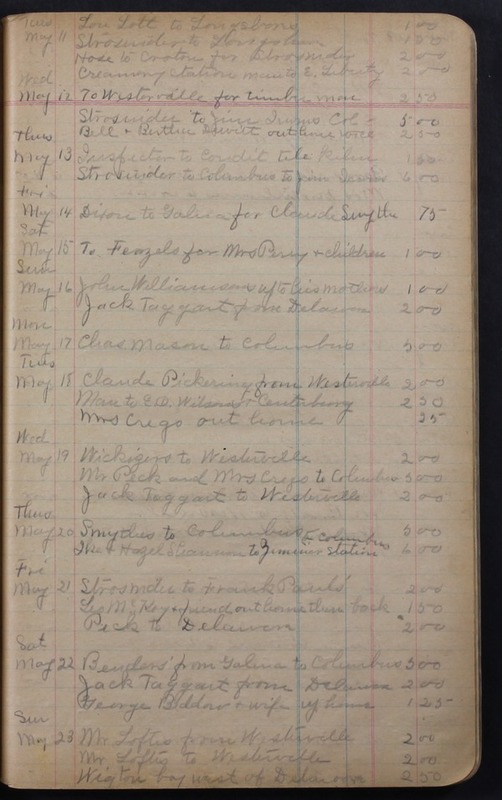 Tues Lou Lott to Longsbone 1 00
May 11 Strosnider to
Hose to Croton for Strosnider 2 00
Wed Creamery station man to E. Liberty 2 00
May 12 To Westerville for timber man 2 50
Strosnider to 5 00
Thurs Bell & Bertha Dewitt out home 2 50
May 13 Inspector to Condit tile kiln 1 50
Strosnider to Columbus to 6 00
Fri
May 14 Dixon to Galena for Claude Smythe 75
Sat
May 15 To Fenzels for Mrs Perry + children 1 00
Sun
May 16 John Williamson up to his mothers 1 00
Jack Taggart from Delaware 2 00
Mon
May 17 Chas Mason to Columbus 5 00
Tues
May 18 Claude Pickering from Westerville 2 00
Man to E.D. Wilsons + Centerburg 2 50
Mrs Crego out home 25
Wed
May 19 Wickizers to Westerville 2 00
Mr Peck and Mrs Crego to Columbus 5 00
Jack Taggart to Westerville 2 00
Thurs
May 20 Smythes to Columbus 5 00
+ Hazel to Station to Columbus 6 00
Fri
May 21 Strosnider to Frank Pauls' 2 00
McKoy + friend out home then back 1 50
Peck to Delaware 2 00
Sat
May 22 Benders' from Galena to Columbus 5 00
Jack Taggart from Delaware 2 00
George Biddow + wife up home 1 25
Sun
May 23 Mr Loftis from Westerville 2 00
Mr Loftis to Westerville 2 00
Wigton boy west of Delaware 2 50